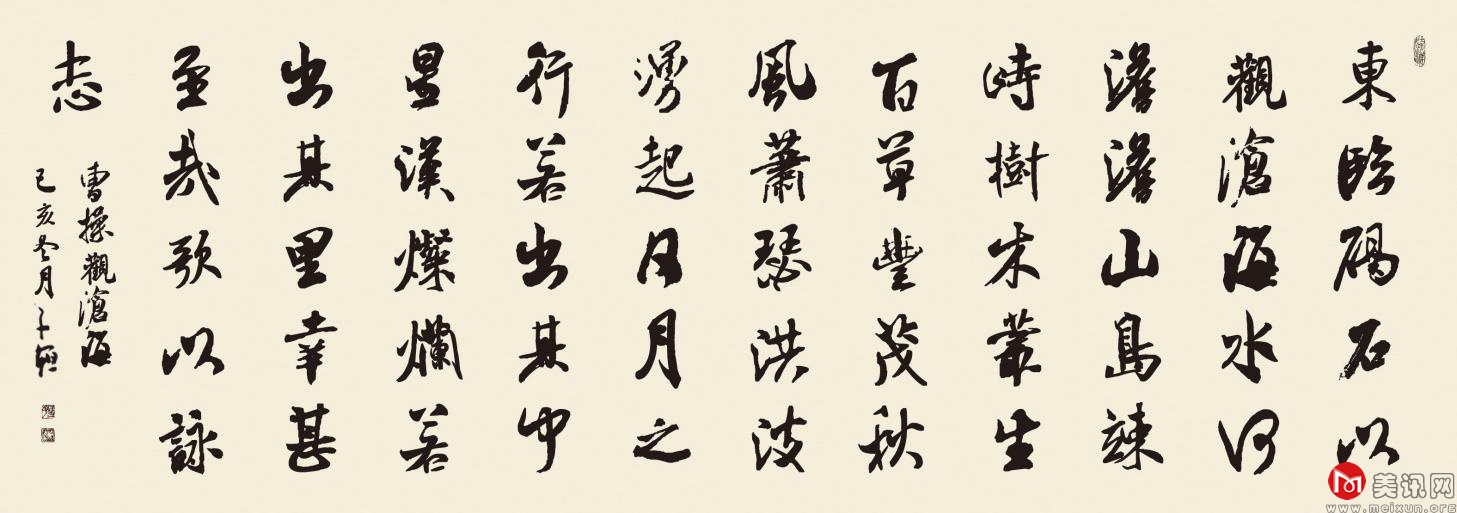 東臨碣石以
觀滄海水何
澹澹山島竦
峙樹木叢生
百草豐茂秋
風蕭瑟洪波
湧起日月之
行若出其中
星漢燦爛若
出其里幸甚
至哉歌以詠
志
曹操觀滄海
己亥冬月
美讯网
www.meixun.org